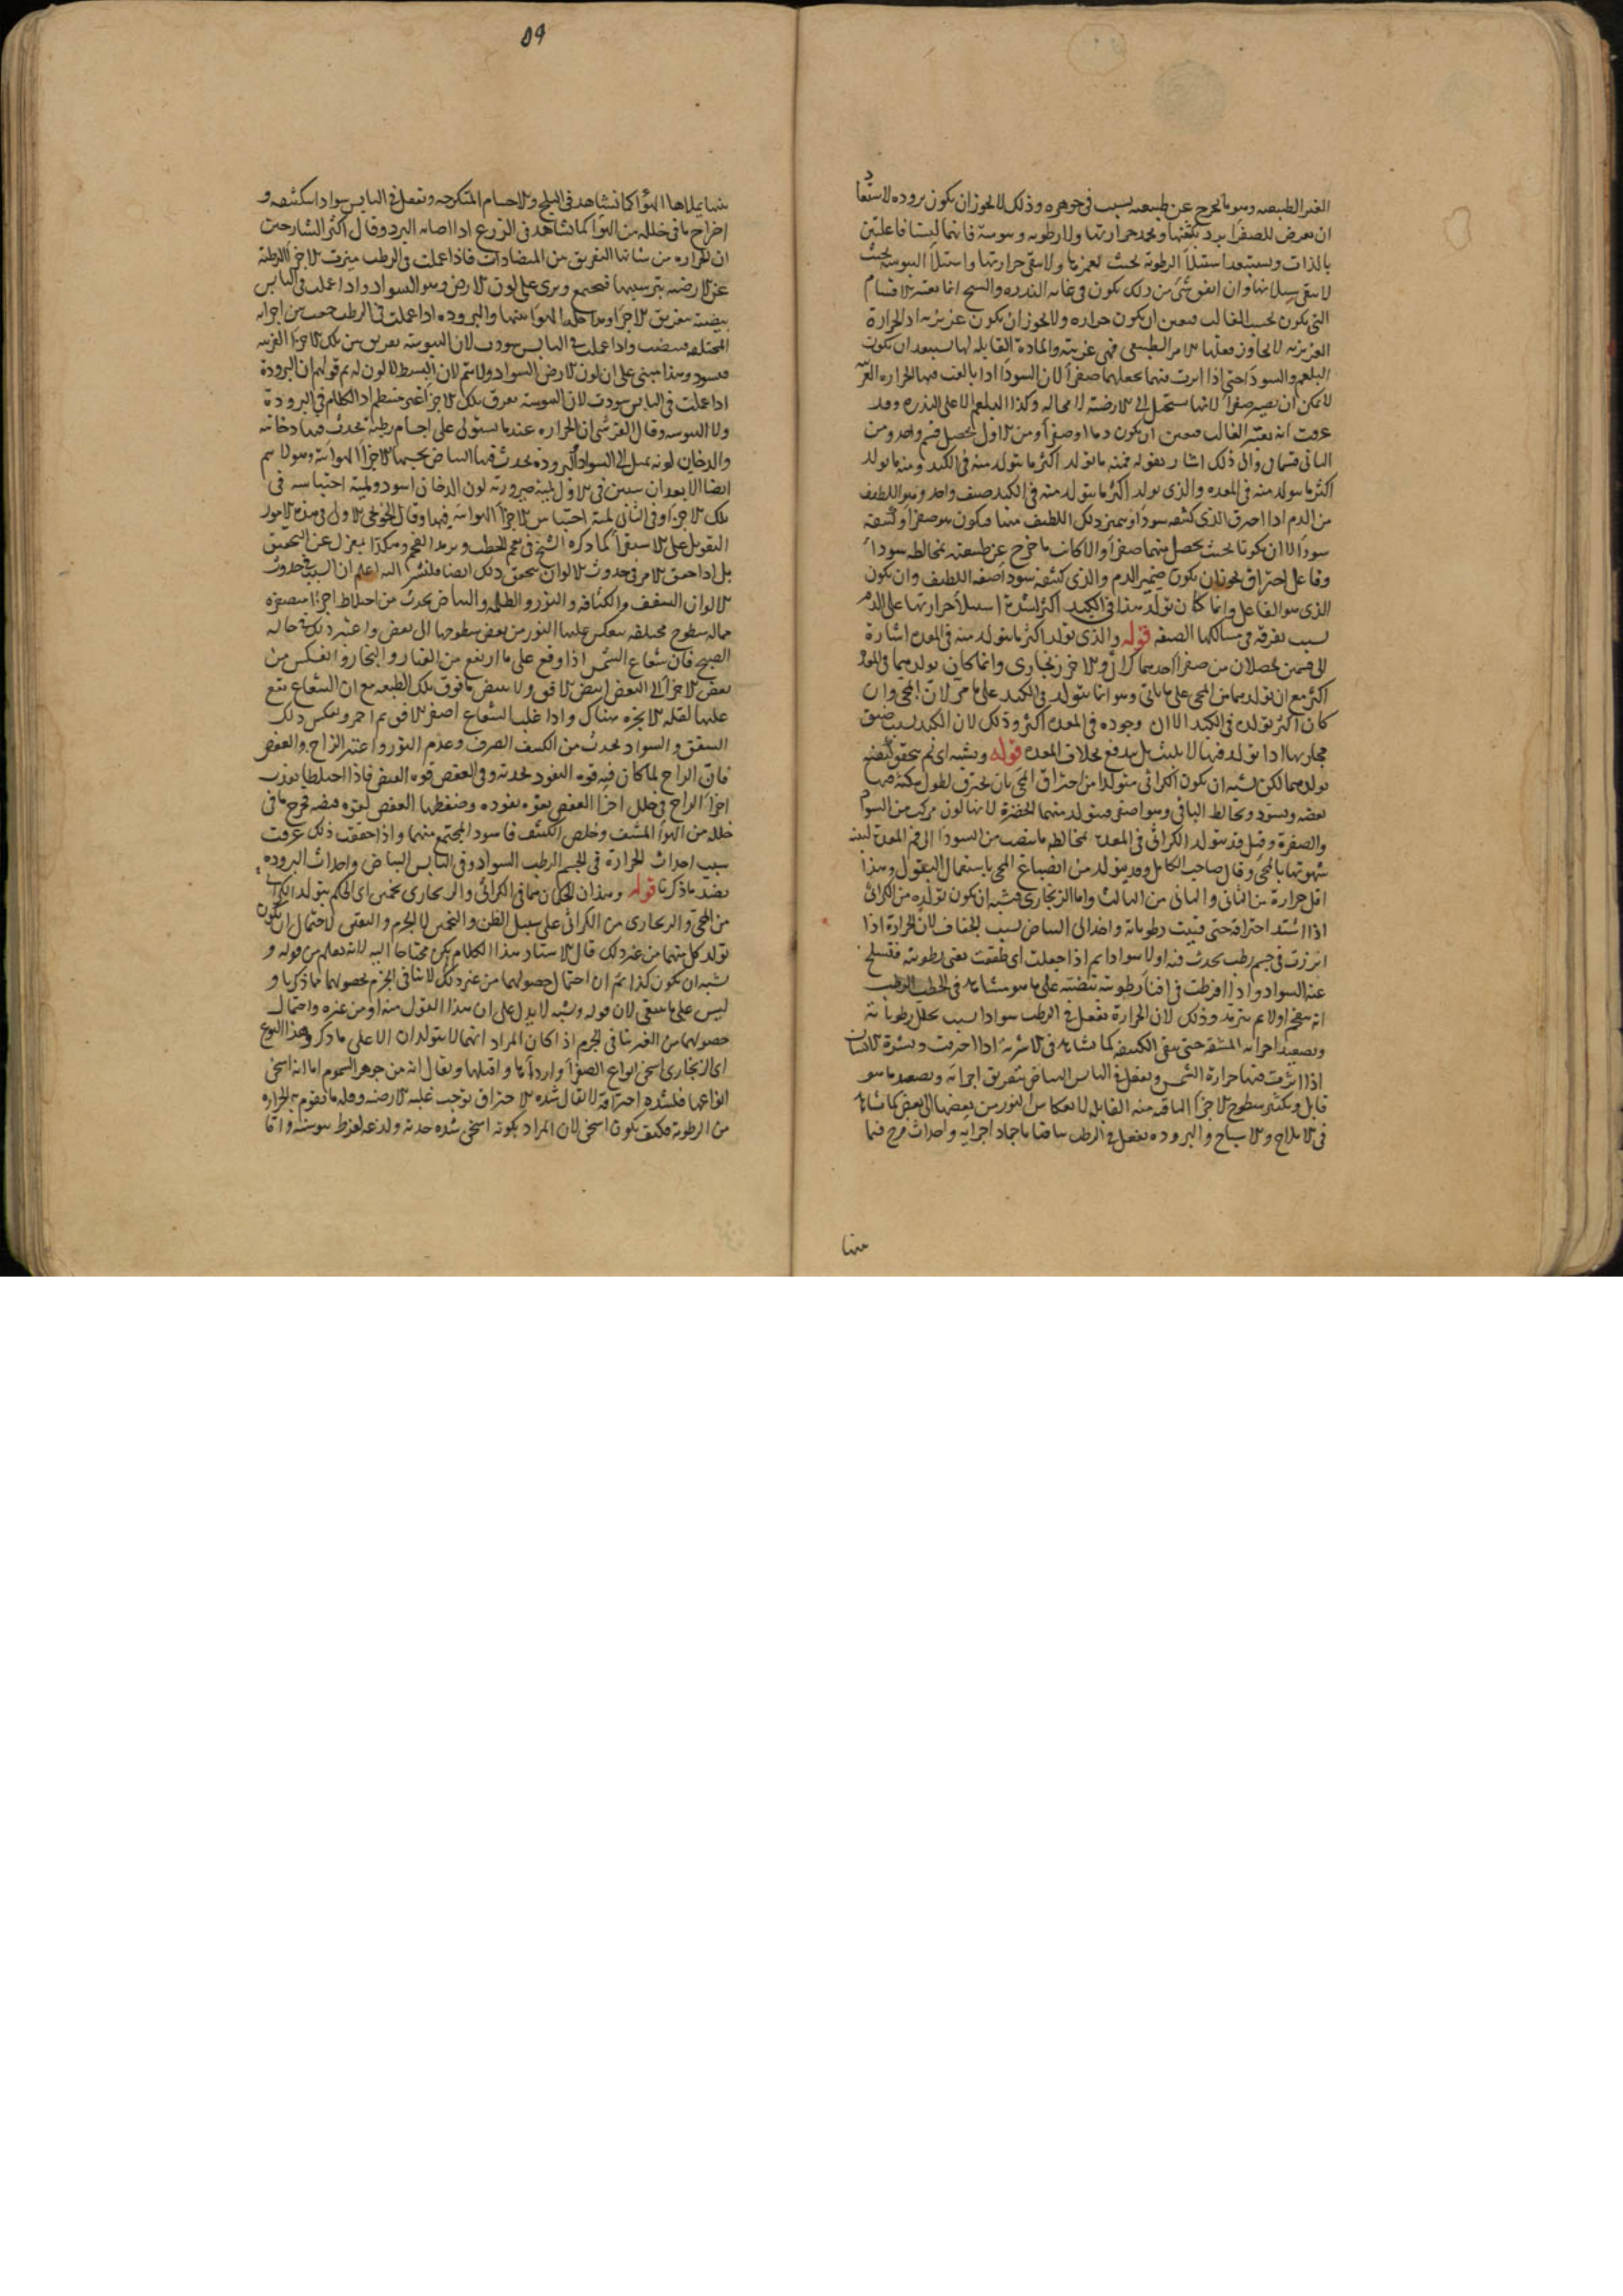 الغير الطبيعيه وهو ما يخرج عن طبيعته لسبب في جوهره وذلك لا يجوز ان يكون بروده لاستبعاد
ان يعرض للصفرا برد يكثفها ويخمد حرارتها ولا رطوبه ويبوسة فانهما ليستا فاعلتين
بالذات ويستبعد استيلأ الرطوبة بحيث تغمرها ولا يبقى حرارتها واستيلأ اليبوسة بحيث
لا يبقى سيلانها وان اتفق شئ من ذلك يكون في غايه الندره والشيخ انما يعتبر الاقسام
التي يكون بحسب الغالب فتعين ان يكون حراره ولا يجوز ان يكون غريزيه اذ الحرارة
الغريزيه لا يجاوز فعلها الامر الطبيعي فهي غريبة والمادة القابله لها يستبعد ان يكون
البلغم والسودا حتى اذا اثرت فيهما يجعلهما صفرأ لان السودا اذا بالغت فيها الحراره
لا يمكن ان يصير صفرأ لانها يستحيل الى الارضية لا محاله وكذا البلغم الا على الندره وقد
عرفت انه يعتبر الغالب فتعين ان يكون دما او صفرأ ومن الاول يحصل قسم واحد ومن
الثاني قسمان والى ذلك اشار بقوله فمنه ما تولد اكثر ما يتولد منه في الكبد ومنه ما تولد
اكثر ما يتولد منه في المعده والذي تولد اكثر ما يتولد منه في الكبد صنف واحد وهو اللطيف
من الدم اذا احترق الذي كثيفه سودأ ويتميز ذلك اللطيف منها فيكون هو صفرأ وكثيفه
سودأ الا ان يكونا بحيث يحصل منهما صفرأ والا كانت ما خرج عن طبيعته بمخالطه سودأ
وفاعل احتراق يجوز ان يكون ضمير الدم والذي كثيفه سودأ صفه اللطيف وان يكون
الذي هو الفاعل وانما كان تولد هذا في الكبد اكثر لشدة استيلأ حرارتها على الدم
لسبب تفرقه في مسالكها الضيقه قوله والذي تولد اكثر ما يتولد منه في المعدة اشارة
الى قسمين يحصلان من صفرأ احدهما كراثي والاخر زنجاري وانما كان تولدهما في المعدة
اكثر مع ان تولدهما من المحي على ما ياتي وهو انما يتولد في الكبد على ما مر لان المحي وان
كان اكثر تولده في الكبد الا ان وجوده في المعدة اكثر وذلك لان الكبد لسبب ضيق
مجاريها اذا تولد فيها لا يلبث بل يندفع بخلاف المعده قوله ويشبه اي لم يتحقق كيفية
تولدهما لكن يشبه ان يكون الكراثي متولدا من احتراق المحي بان يحترق لطول مكثه فيها
بعضه ويسود ويخالط الباقي وهو اصفر فيتولد منهما الخضرة لانها لون مركب من السواد
والصفرة وقيل قد يتولد الكراثي في المعدة بمخالطه ما ينصب من السودا الى فم المعدة لتنبه
شهوتها بالمحي وقال صاحب الكامل وقد يتولد من انصباغ المحي باستعمال البقول وهذا
اقل حرارة من الثاني والثاني من الثالث واما الزنجاري فيشبه ان يكون تولده من الكراثي
اذا اشتد احتراقه حتى فنيت رطوباته واخذ الى البياض لسبب الجفاف لان الحرارة اذا
اثرت في جسم رطب يحدث فيه اولا سوادا ثم اذا جعلت اي طفقت تفني رطوبته فتسلخ
عنه السواد واذا افرطت في افناء رطوبته تبيضه على ما هو مشاهد في الحطب الرطب
انه يتفحم اولا ثم يترمد وذلك لان الحرارة تفعل في الرطب سوادا لسبب تحلل رطوباته
وتصعيد اجزائه المشفه حتى يبقى الكثيفه كما نشاهد في الاشربه اذا احرقت وبشرة الانسان
اذا اثرت فيها حرارة الشمس وتفعل في اليابس البياض بتفريق اجزائه وتصعيد ما هو
قابل وتكثير سطوح الاجزا الباقيه منه القابله لانعكاس النور من بعضها الى بعض كما نشاهد
في الاملاح والاسباخ والبروده تفعل في الرطب بياضا باجماد اجزائه واحداث فرج فيما
بينها
٥٩
بينها يملاها الهوأ كما نشاهد في الثلج والاجسام المتكرجه وتفعل في اليابس سوادا بتكثيفه و
اخراج ما في خلله من الهوأ كما نشاهد في الزرع اذا اصابه البرد وقال اكثر الشارحين
ان الحراره من شانها التفريق بين المتضادات فاذا عملت في الرطب ميزت الاجزأ الرطبة
عن الارضيه بترسيبها فتجتمع ويرى على لون الارض وهو السواد واذا عملت في اليابس
بيضته بتفريق الاجزا ومداخله الهوأ بينها والبروده اذا عملت في الرطب جمعت بين اجزائه
المختلفه فبيضت واذا عملت في اليابس سودت لان اليبوسة تفريق بين تلك الاجزأ الغريبه
فتسود وهذا مبني على ان لون الارض السواد ولا يتم لان البسيط لا لون له ثم قولهم ان البرودة
اذا عملت في اليابس سودت لان اليبوسة تفرق تلك الاجزأ غير منتظم اذ الكلام في البرودة
ولا اليبوسه وقال القرشي ان الحراره عندما يستولي على اجسام رطبة يحدث فيها دخانيه
والدخان لونه يميل الى السواد والبروده يحدث فيها البياض بحبسها الاجزأ الهوائية وهو لا يتم
ايضا الا بعد ان يبين في الاول لمية صيرورته لون الدخان اسود ولمية احتباسه في
تلك الاجزأ وفي الثاني لمية احتباس الاجزأ الهوائيه فيها وقال الخونجي الاولى في هذه الامور
التعويل على الاستقرأ كما ذكره الشيخ في تفحم الحطب وترمد الفحم وهكذا بمعزل عن التحقيق
بل اذا حقق الامر في حدوث الالوان يتحقق ذلك ايضا فلنشر اليه اعلم ان السبب في حدوث
الالوان الشفيف والكثافه والنور والظلمه والبياض يحدث من اختلاط اجزأ متصغره
شعاع الشمس اذا وقع على ما ارتفع من الغبار والبخار وانعكس من
بعض الاجزأ الى البعض ابيض الافق ولا يبيض ما فوق تلك الطبقه مع ان الشعاع يقع
عليها لقله الابخره هناك واذا غلب الشعاع اصفر الافق ثم احمر وبعكس ذلك
الشفق والسواد يحدث من الكثيف الصرف وعدم النور واعتبر الزاج والعفص
فان الزاج لما كان فيه قوه النفوذ لحدته وفي العفص قوه القبض فاذا اختلطا ينفذ
اجزأ الزاج في خلل اجزأ العفص بقوه نفوذه وضغطها العفص لقوه قبضه فخرج ما في
خلله من الهوأ المشف وخلص الكثيف فاسود المجتمع منهما واذا حققت ذلك عرفت
سبب احداث الحرارة في الجسم الرطب السواد وفي اليابس البياض واحداث البروده
بضد ما ذكرنا قوله وهذان الحكمان هما في الكراثي والزنجاري تخمين اي الحكم بتولد الكراثي
من المحي والزنجاري من الكراثي على سبيل الظن والتخمين لا الجزم واليقين لاحتمال ان يكون
تولد كل منهما من غير ذلك قال الاستاد هذا الكلام لم يكن محتاجا اليه لانه يعلم من قوله و
يشبه ان يكون كذا ثم ان احتمال حصولهما من غير ذلك لا ينافي الجزم بحصولهما مما ذكرنا و
ليس على ما ينبغي لان قوله ويشبه لا يدل على ان هذا القول منه او من غيره واحتمال
حصولهما من الغير ينافي الجزم اذ كان المراد انهما لا يتولدان الا على ما ذكر وهذا النوع
اي الزنجاري اسخن انواع الصفرأ واردأها واقتلها ويقال انه من جوهر السموم اما انه اسخن
انواعها فلشده احتراقه لا يقال شده الاحتراق توجب غلبه الارضيه وقله ما تقوم به الحراره
من الرطوبة فكيف يكون اسخن لان المراد بكونه اسخن شده حدته ولذعه لفرط يبوسته واما